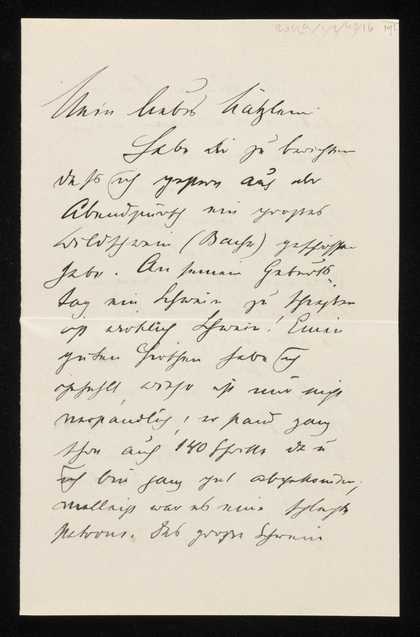 Mein liebes Kätzlein
Habe dir zu berichten
daß ich gestern auf der
Abendpürsch ein großes
Wildschwein (Bache) geschossen
habe. An seinem Geburts-
tag ein Schwein zu schießen
ist wirklich Schwein! Einen
guten Hirschen habe ich
gefehlt, wieso ist mir nicht
verständlich, er stand ganz
frei auf 140 Schritte da u
ich bin ganz gut abgekommen,
vielleicht war es eine schlechte
Patrone. Das große Schwein